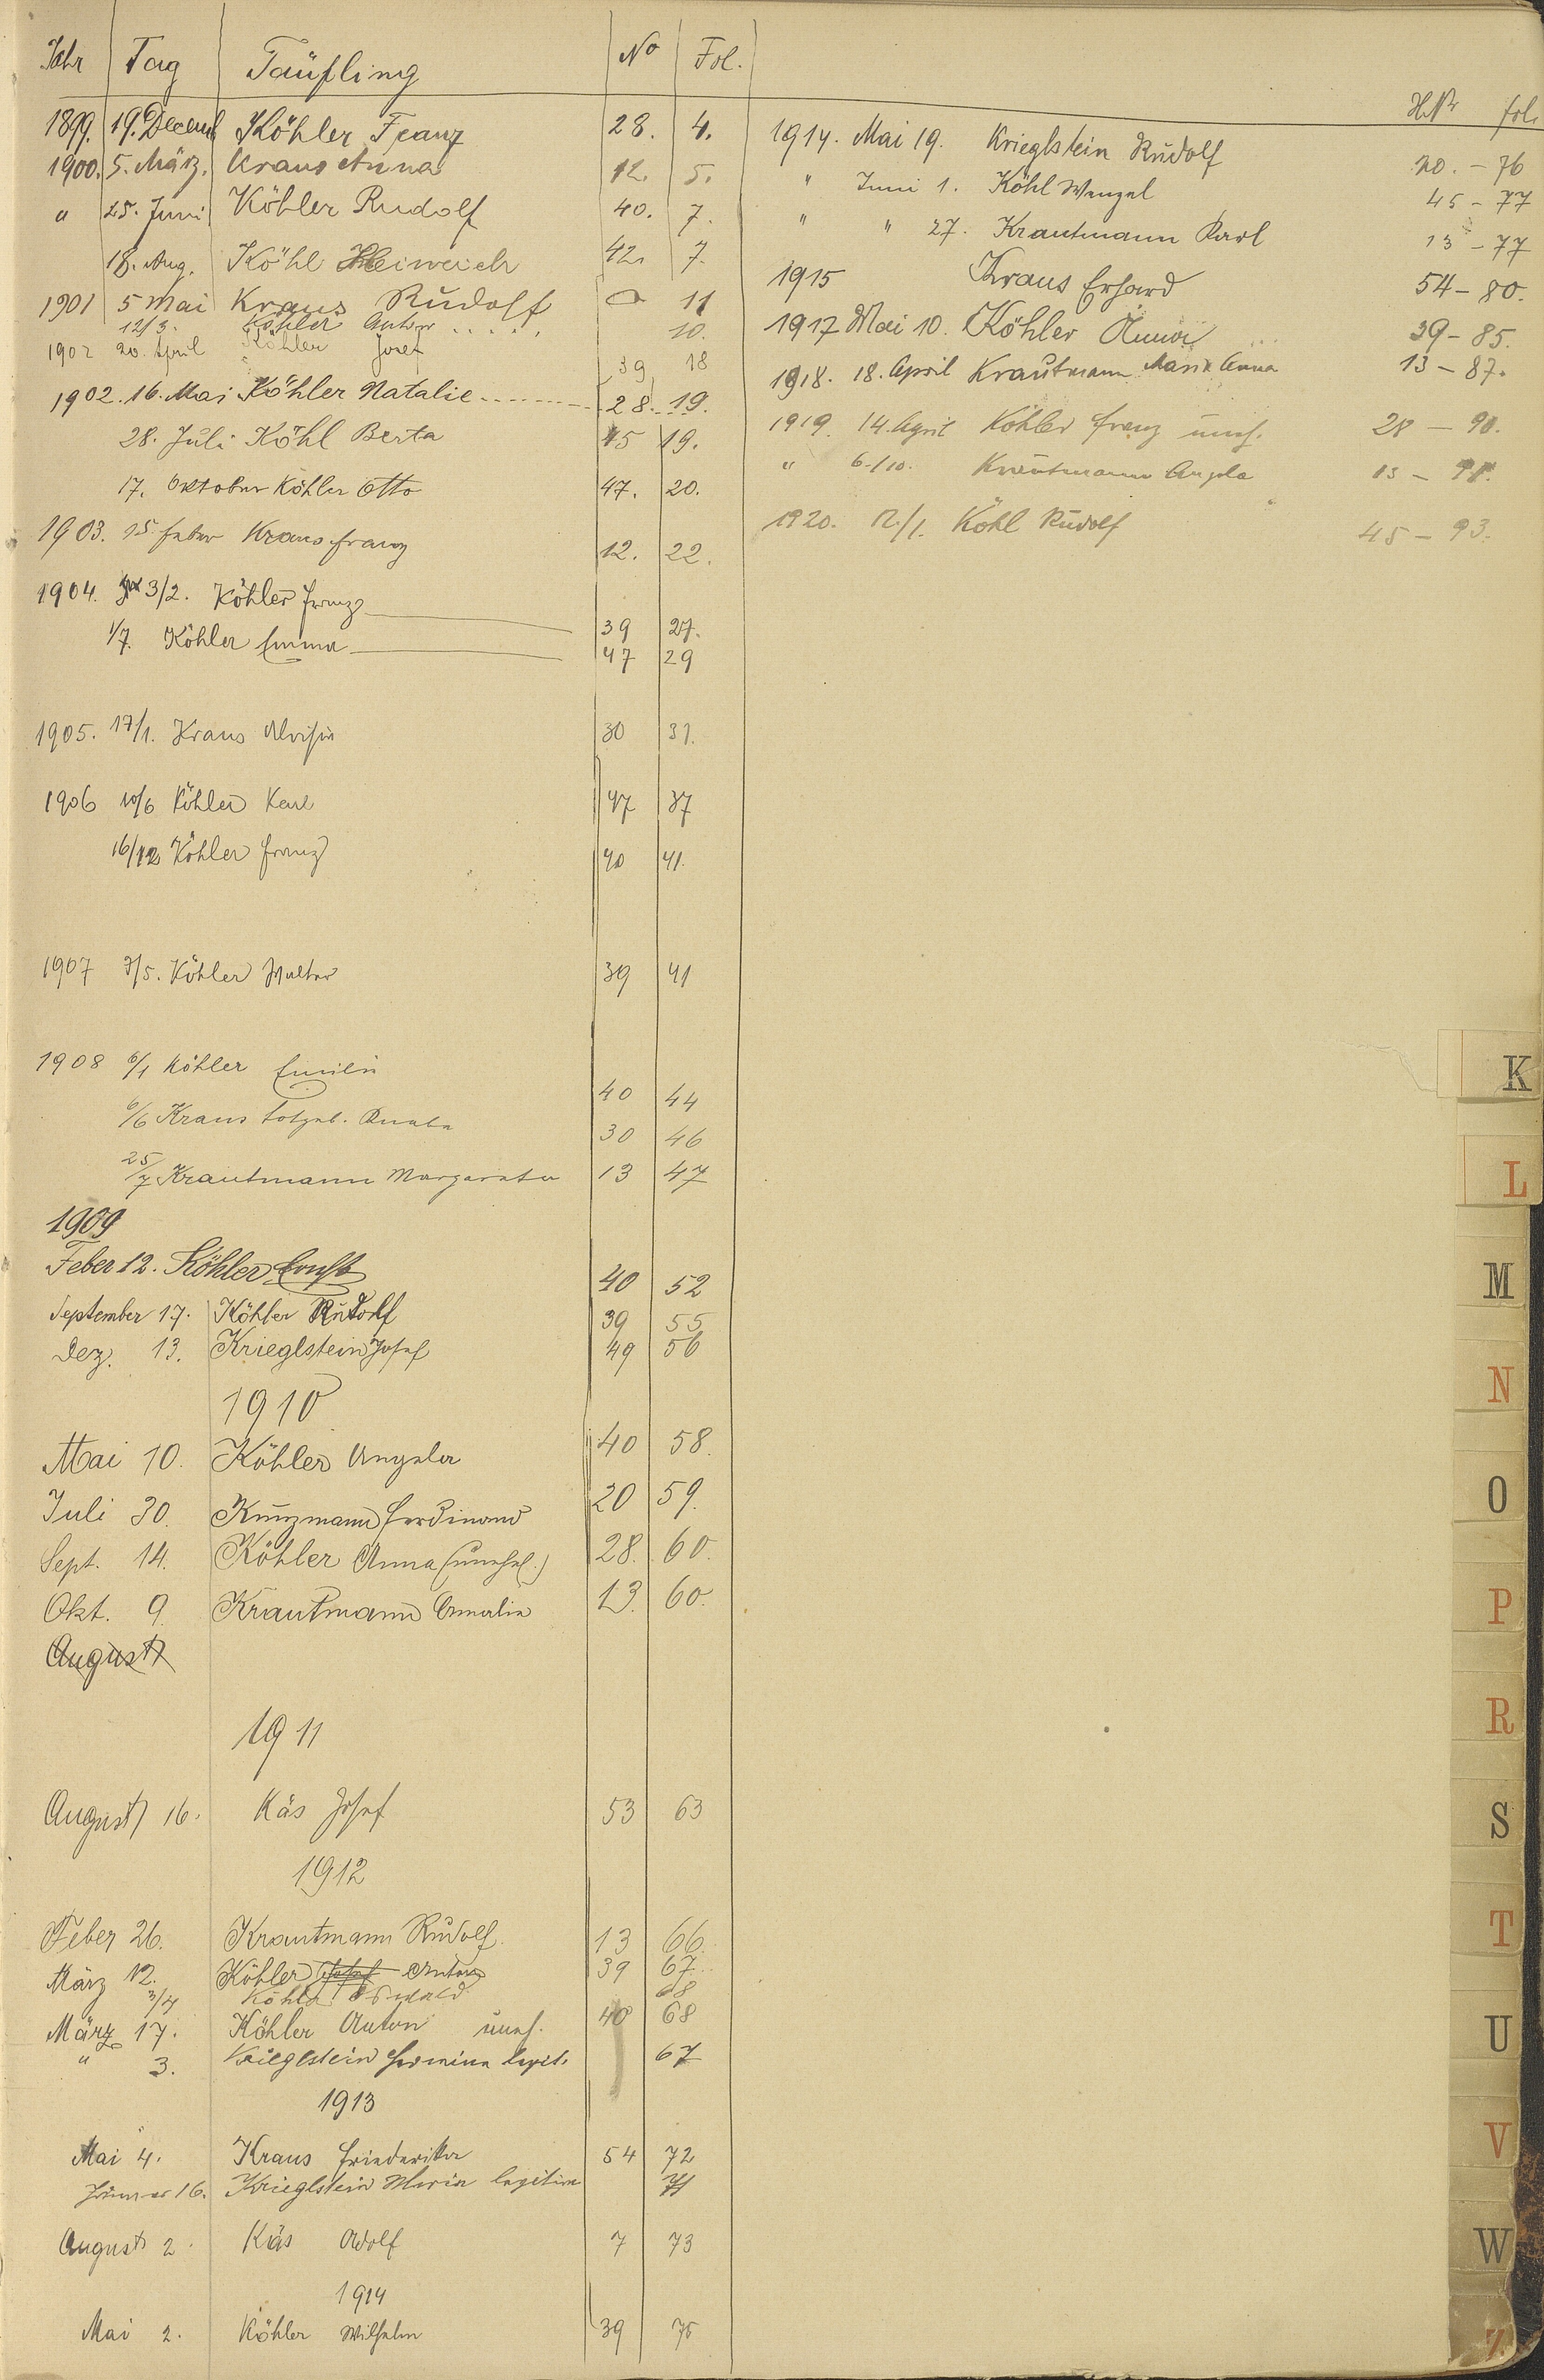 Jahr Tag Täufling No Fol.
1899. 19. Decemb Köhler Franz 28. 4.
1900. 5. März. Kraus Anna 12. 5.
" 25. Juni Köhler Rudolf 40. 7.
18. Aug. Köhl Heinrich 42. 7.
1901 5 Mai Kraus Rudolf 11
12/3. Köhler Anton ...... 10.
1902 20. April Köhler Josef 39 18
1902. 16. Mai Köhler Natalie ........ 28. 19.
28. Juli Köhl Berta 45 19.
17. Oktober Köhler Otto 47. 20.
1903. 15. Feber Kraus Franz 12. 22.
1904. 3/2. Köhler Franz 39 27.
1/7. Köhler Emma 47 29
1905. 17/1. Kraus Aloisia 30 31.
1906 10/6 Köhler Karl 47 37
16/12 Köhler Franz 40 41.
1907 7/5. Köhler Walter 39 41
1908 6/1 Köhler Emilie 40 44
6/6 Kraus totgeb. Knabe 30 46
25/7 Krautmann Margareta 13 47
1909
Feber 12. Köhler Ernst 40 52
September 17. Köhler Rudolf 39 55
Dez. 13. Krieglstein Josef 49 56
1910
Mai 10. Köhler Angela 40 58.
Juli 30. Kunzmann Ferdinand 20 59.
Sept. 14. Köhler Anna (unehel.) 28. 60.
Okt. 9. Krautmann Amalia 13. 60.
August
1911
August 16. Käs Josef 53 63
1912
Feber 26. Krautmann Rudolf 13 66.
März 12. Köhler Josef Anton 39 67
3/4 Köhler Oswald 68
März 17. Köhler Anton uneh. 40 68
" 3. Krieglstein Hermine legit. 67
1913
Mai 4. Kraus Friederike 54 72
Jänner 16. Krieglstein Maria legitim 71
August 2. Käs Adolf 7 73
1914
Mai 2. Köhler Wilhelm 39 75
HNr fol.
1914. Mai 19. Krieglstein Rudolf 20. - 76
" Juni 1. Köhl Wenzel 45 - 77
" " 27. Krautmann Karl 13 - 77
1915 Kraus Erhard 54 - 80.
1917 Mai 10. Köhler Anna 39 - 85.
1918. 18. April Krautmann Maria Anna 13 - 87.
1919. 14. April Köhler Franz uneh. 28 - 90.
" 6./10. Krautmann Angela 13 - 91.
1920. 12./1. Köhl Rudolf 45 - 93.
K
L
M
N
O
P
R
S
T
U
V
W
Z